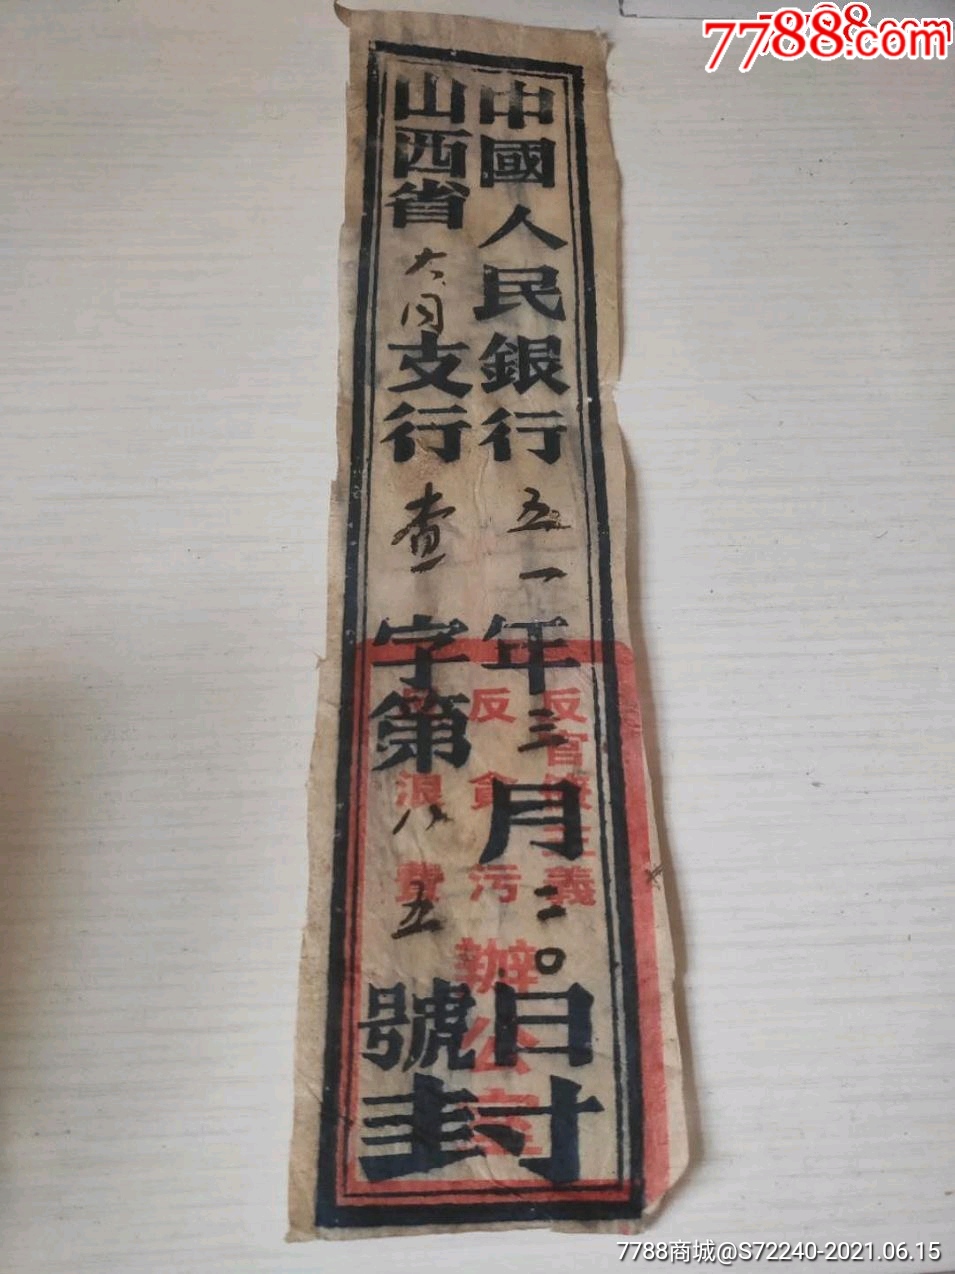 7788.com
7788.com
中國人民銀行五一年三月二〇日
山西省大同支行壹字第八五號
封
反官僚主義
反貪污
反浪費
辦公室
7788商城@S72240-2021.06.15